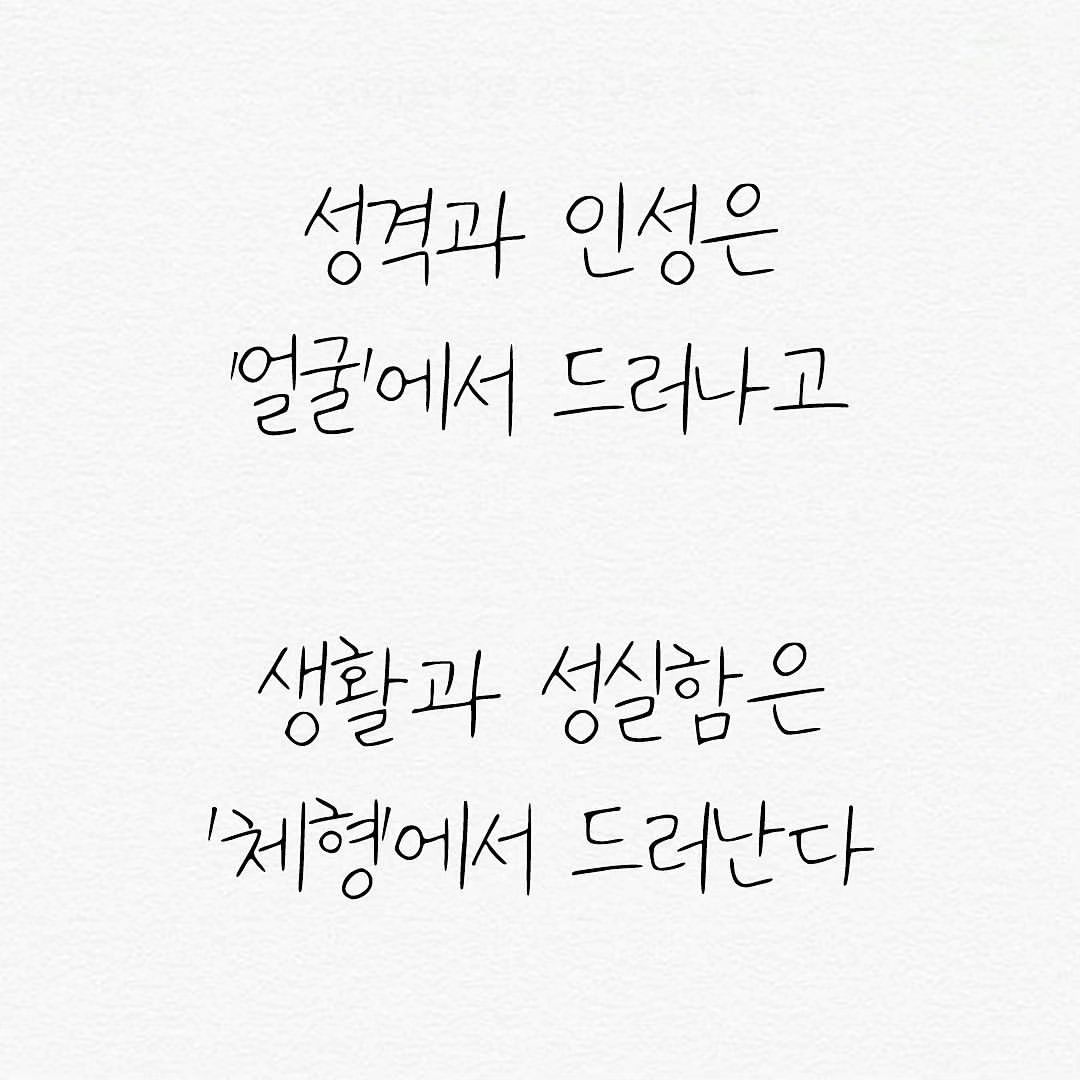 성격과 인성은
'얼굴'에서 드러나고
생활과 성실함은
'체형'에서 드러난다